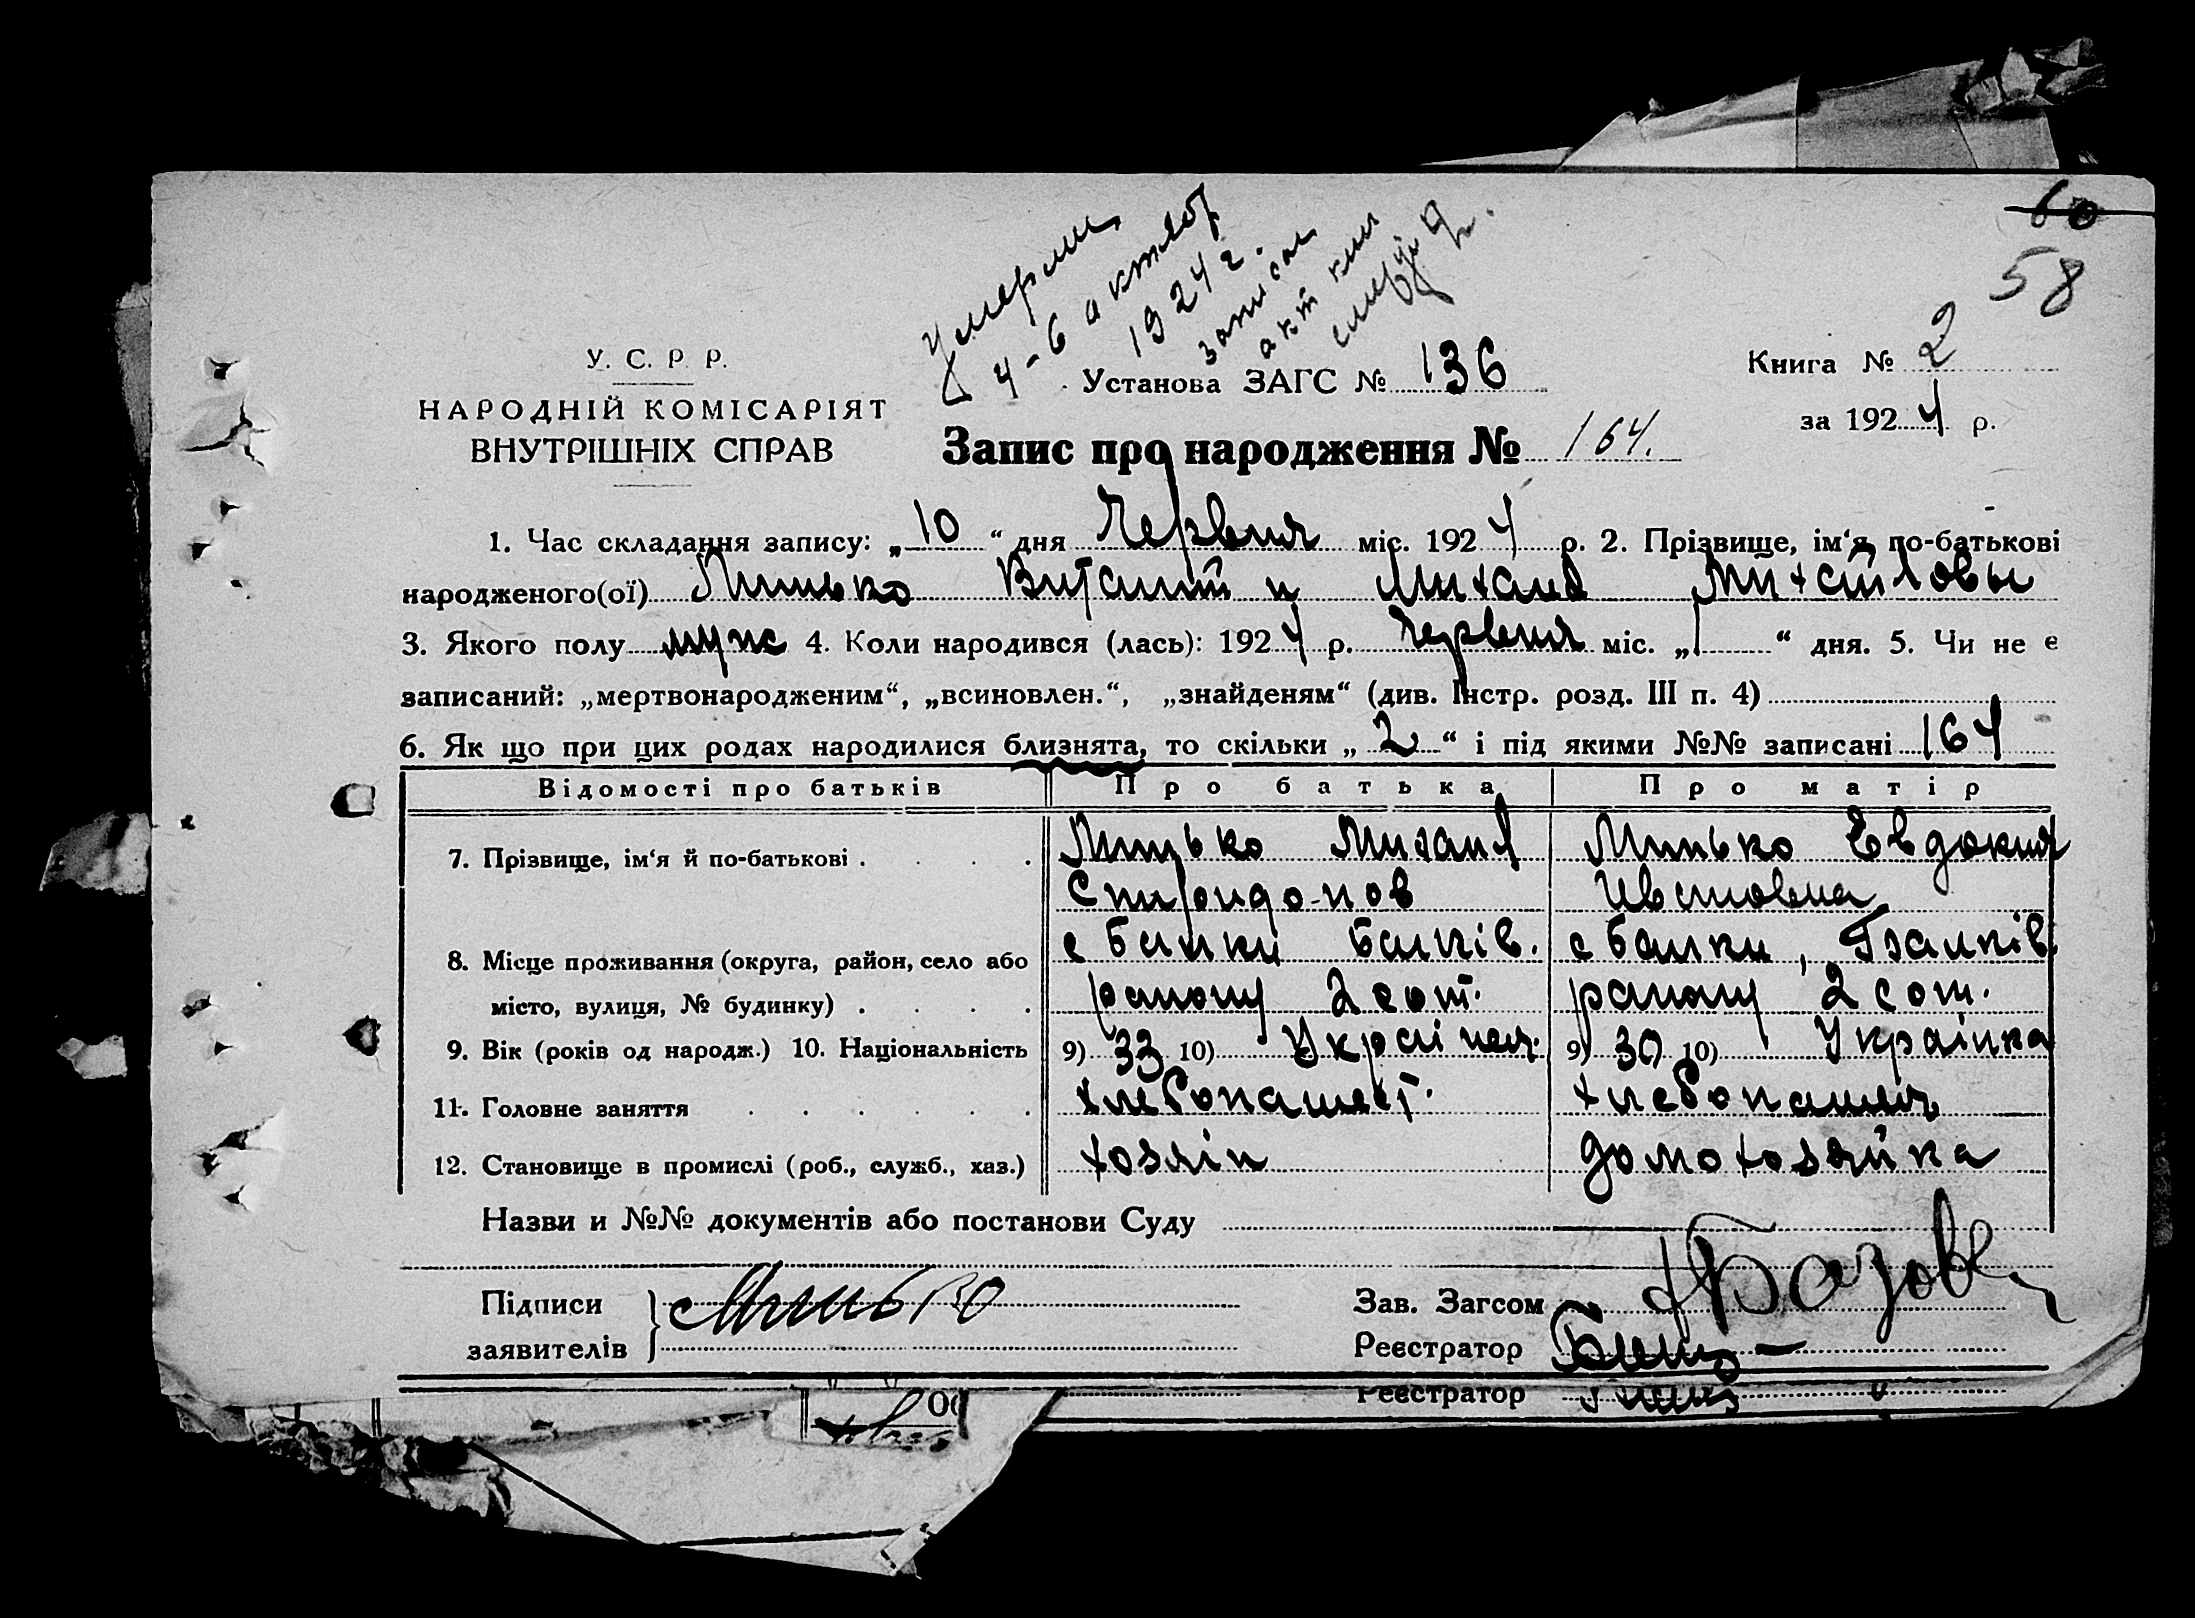 60
58
умерли
4-6 октябр
1924 г.
записан
акт
У. С. Р. Р.
НАРОДНІЙ КОМІСАРІЯТ
ВНУТРІШНІХ СПРАВ
Установа ЗАГС № 136
Книга № 2
за 1924 р.
Запис про народження № 164.
1. Час складання запису: „10“ дня Червня міс. 1924 р. 2. Прізвище, ім‘я, по-батькові
народженого(ої) Минько и Михаил Михайловы
3. Якого полу муж 4. Коли народився (лась): 1924 р. Червня міс. „1“ дня. 5. Чи не є
записаний: „мертвонародженим“, „всиновлен.“, „знайденям“ (див. Інстр. розд. III п. 4)
6. Як що при цих родах народилися близнята, то скільки „2“ і під якими №№ записані 164
Відомості про батьків Про батька Про матір
7. Прізвище, ім‘я й по-батькові . . . . Минько Михаил Минько Евдокия
Спиридонов Ивановна
8. Місце проживання (округа, район, село або с Балки Балків. с Балки, Балків
місто, вулиця, № будинку) . . . . району 2 сот. району 2 сот.
9. Вік (років од народж.) 10. Національність 9) 33 10) Українец. 9) 30 10) Українка
11. Головне заняття . . . . . . хлебопашест. хлебопашец
12. Становище в промислі (роб., служб., хаз.) хозяін домохозяйка
Назви и №№ документів або постанови Суду
Підписи
заявителів
Минько
Зав. Загсом
Реєстратор
Реєстратор